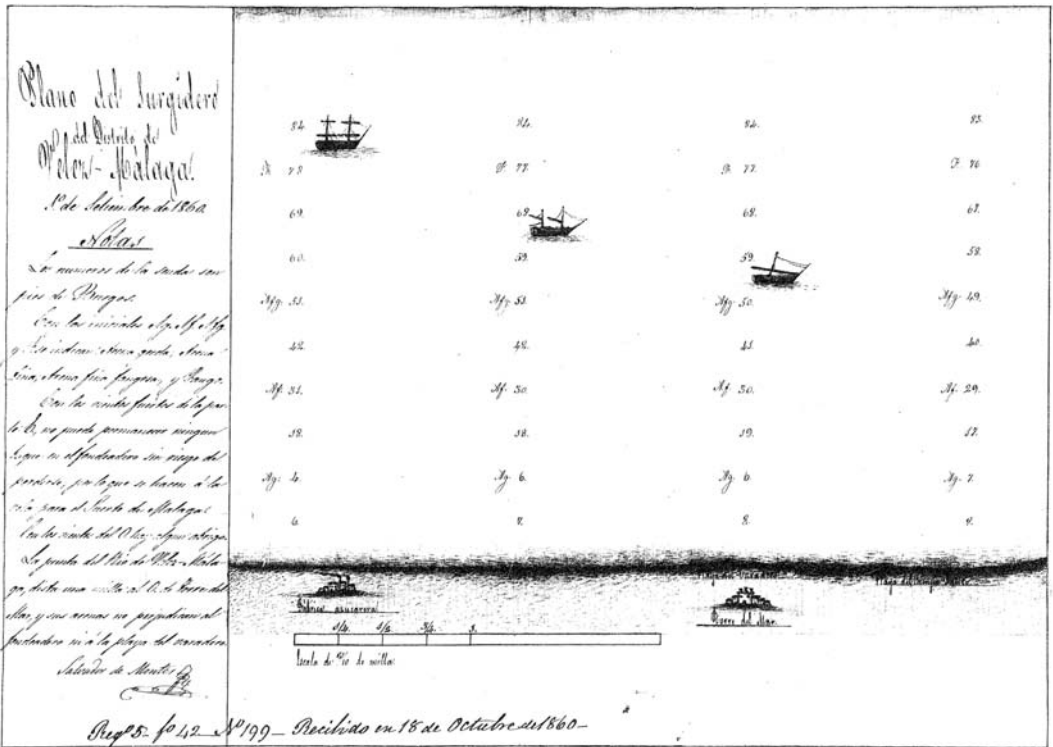 Plano del Surgidero
del Distrito de
Velez-Málaga.
1º de Setiembre de 1860.
Notas
Los numeros de la sonda son
pies de Burgos.
Con las iniciales Ag. Af. Afg.
y F. se indican: Arena gorda, Arena
fina, Arena fina fangosa, y Fango.
Con los vientos fuertes de la par-
te E, no puede permanecer ningun
buque en el fondeadero sin riesgo de
perderse, por lo que se hacen á la
vela para el Puerto de Malaga.
Con los vientos del O. hay algun abrigo.
La punta del Rio de Velez-Mála-
ga, dista una milla al O. de Torre del
Mar, y sus arenas no perjudican al
fondeadero ni á la playa del varadero.
Salvador de Montes
84. 84. 84. 83.
F. 78 F. 77. F. 77. F. 76
69. 69. 68. 67.
60. 59. 59. 58.
Afg. 51. Afg. 51. Afg. 50. Afg. 49.
42. 42. 41. 40.
Af. 31. Af. 30. Af. 30. Af. 29.
18. 18. 19. 17.
Ag. 6. Ag. 6 Ag. 7.
8.
Fábrica azucarera
Torre del Mar.
1/4. 1/2. 3/4. 1.
Escala de
de milla
Regº 5- fº 42- Nº 199- Recibido en 18 de Octubre de 1860-